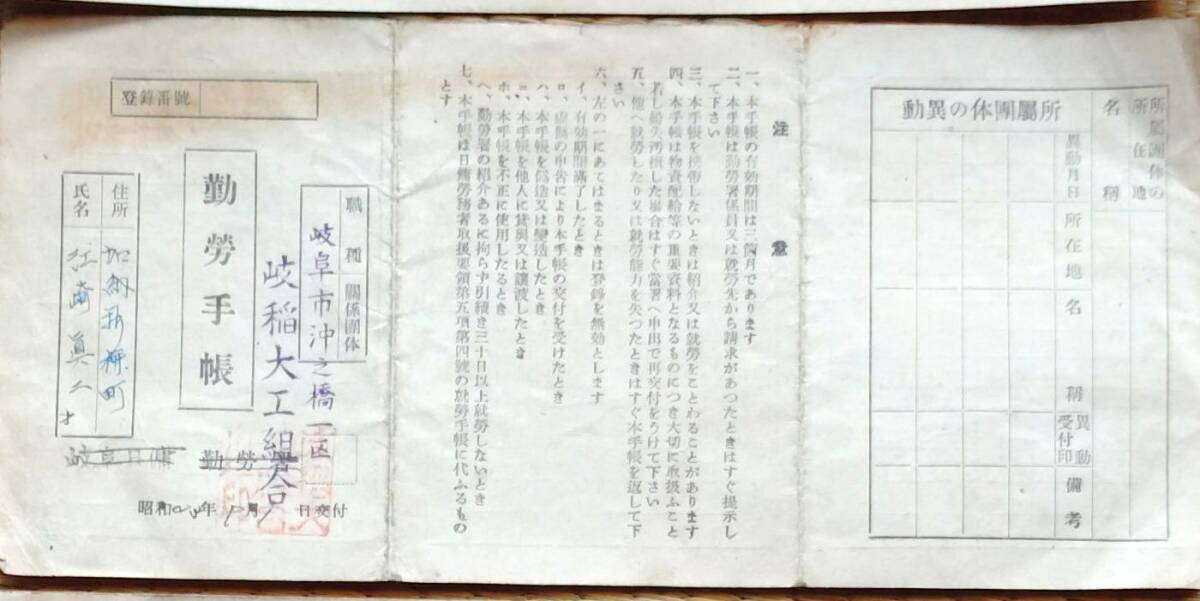 所屬團体の
所在地
名稱
所屬團体の異動
異動月日
所在地
名稱
異動受付印
備考
注意
一、本手帳の有効期間は三箇月であります
二、本手帳は勤勞署係員又は就勞先から請求があつたときはすぐ提示し
て下さい
三、本手帳を携帶しないときは紹介又は就勞をことわることがあります
四、本手帳は物資配給等の重要資料となるものにつき大切に取扱ふこと
若し紛失汚損した場合はすぐ當署へ申出で再交付をうけて下さい
五、他へ就勞したり又は就勞能力を失つたときはすぐ本手帳を返して下
さい
六、左の一にあてはまるときは登録を無効とします
イ、有効期間滿了したとき
ロ、虛僞の申吿により本手帳の交付を受けたとき
ハ、本手帳を僞造又は變造したとき
ニ、本手帳を他人に貸與又は讓渡したとき
ホ、本手帳を不正に使用したるとき
ヘ、勤勞署の紹介あるに拘らず引續き三十日以上就勞しないとき
七、本手帳は日傭勞務者取扱要領第五項第四號の就勞手帳に代ふるもの
とす
登錄番號
職種
關係團体
岐阜市沖之橋一区
岐稲大工組合
勤勞手帳
住所
加納新柳町
氏名
江崎眞二
才
岐阜日傭勤勞
昭和 年 月 日交付